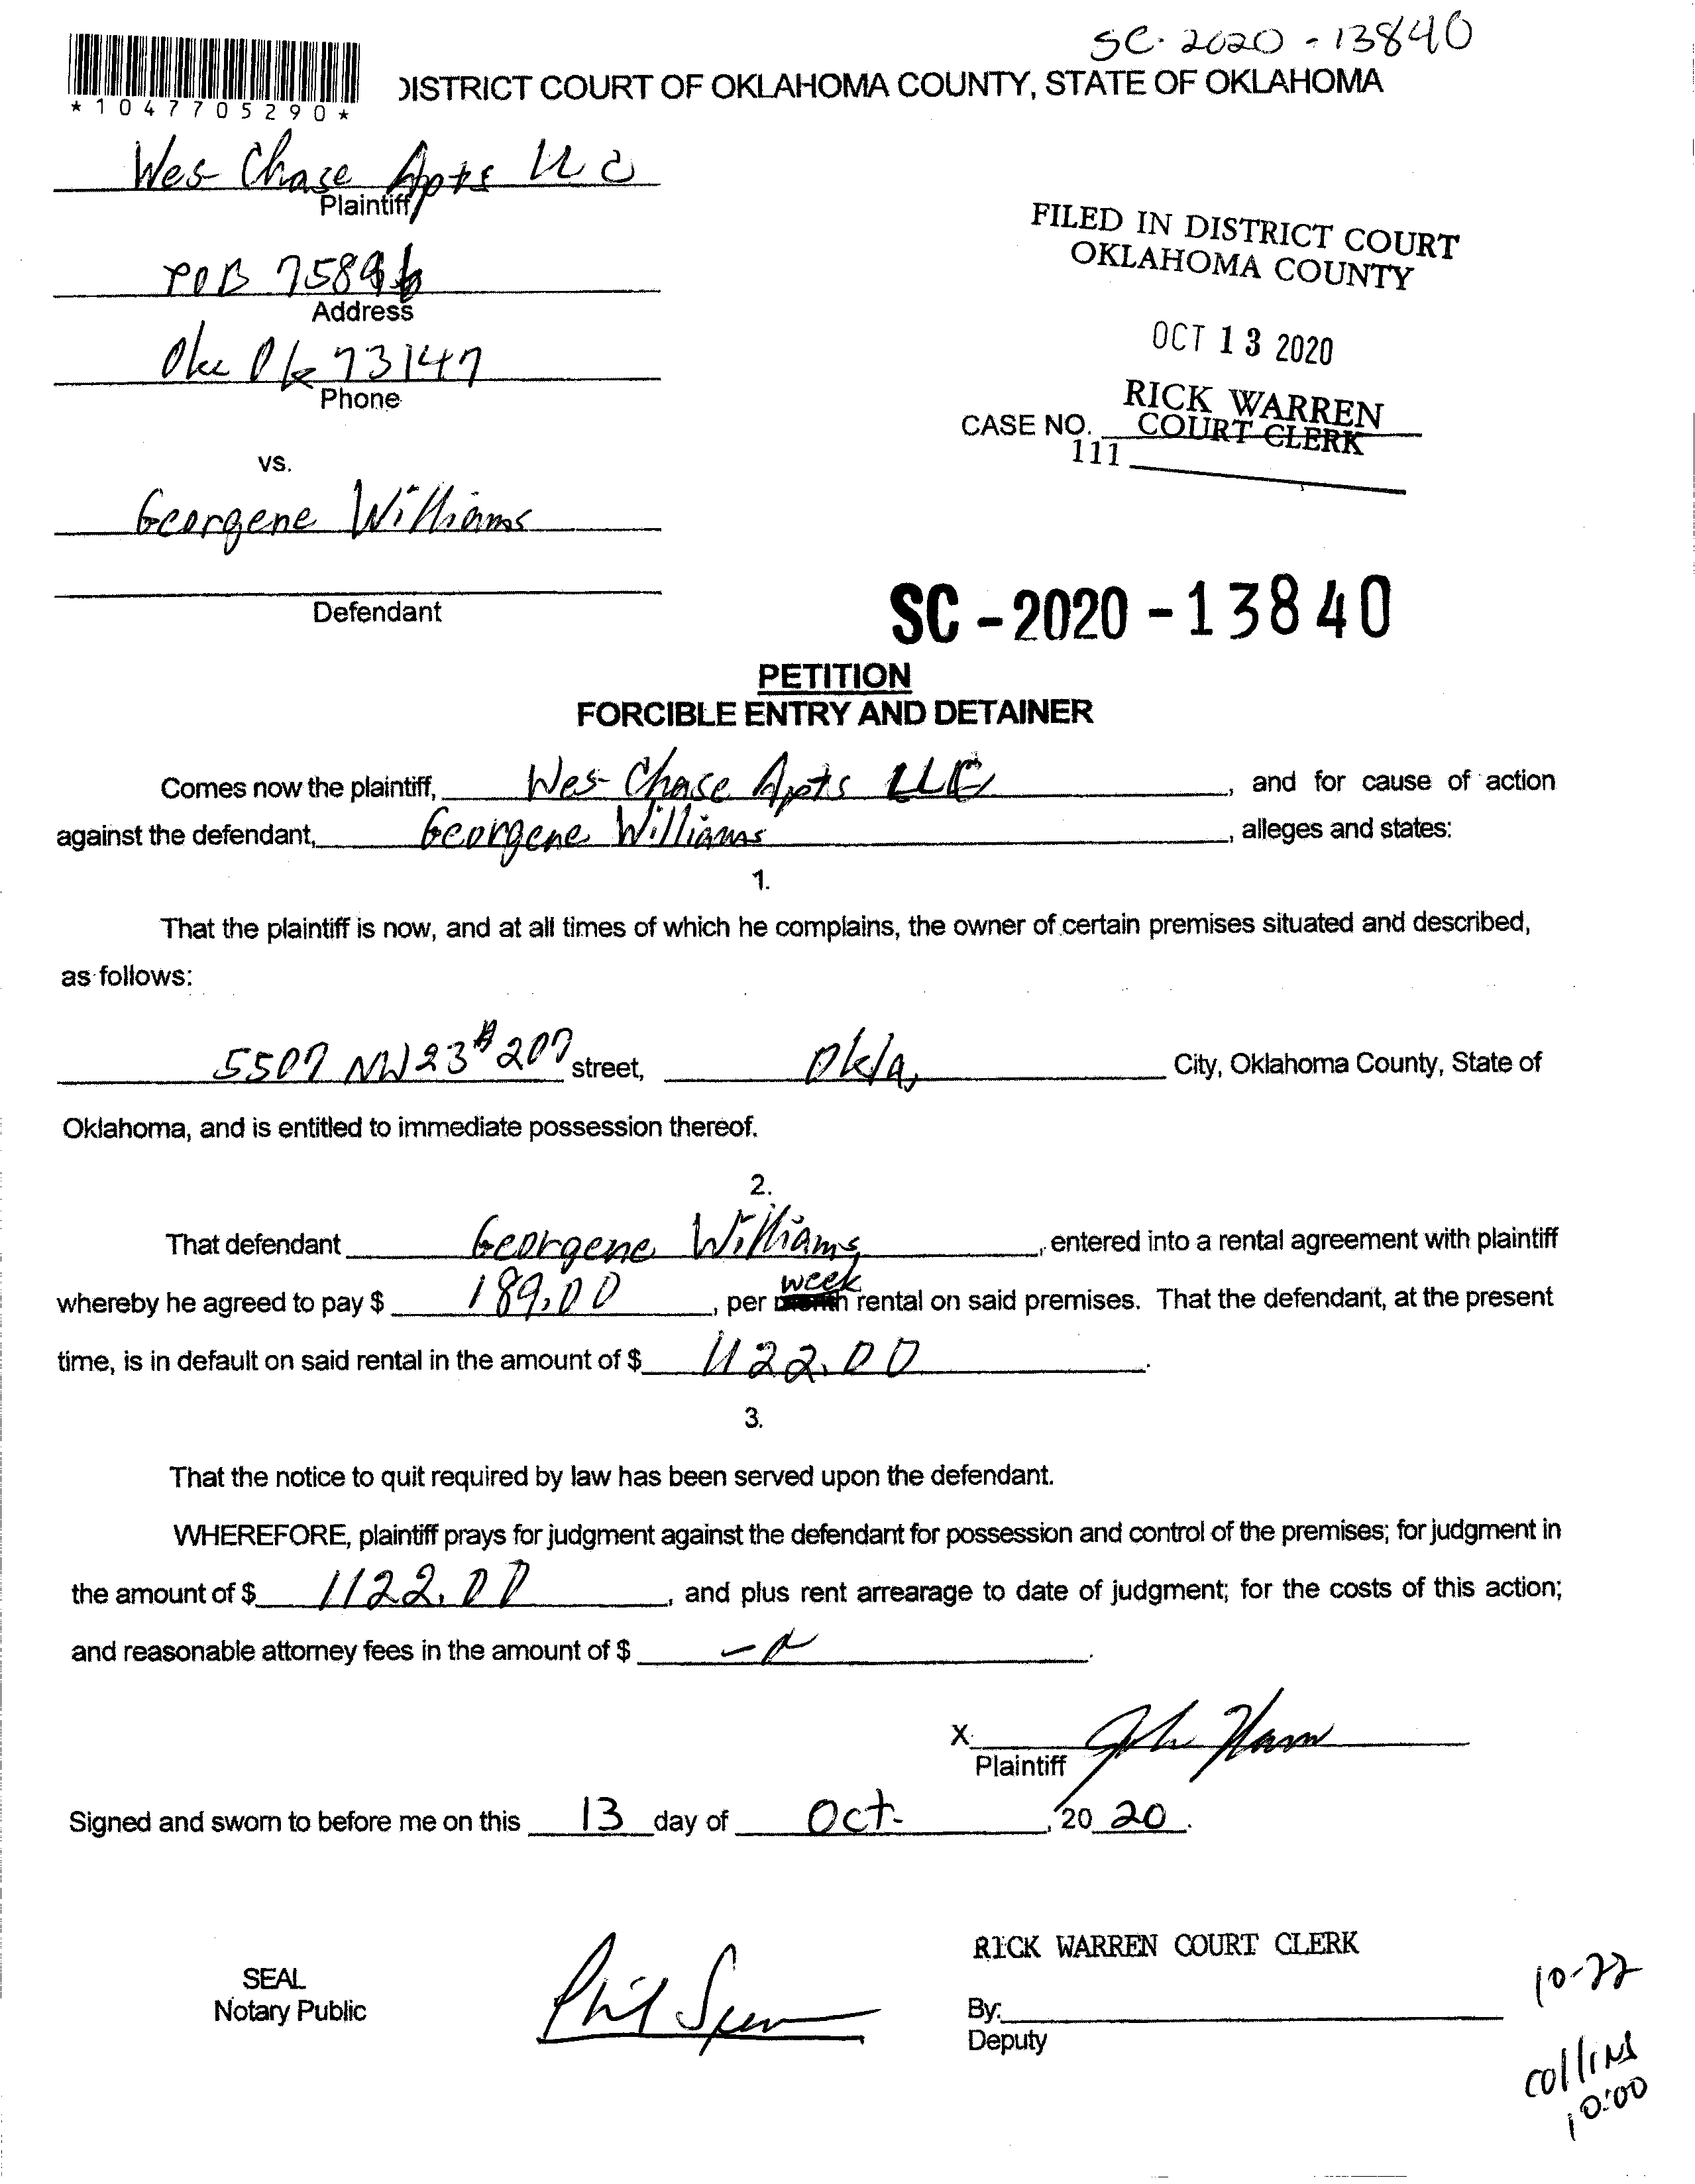 SC-2020-13840
*1047705290*
DISTRICT COURT OF OKLAHOMA COUNTY, STATE OF OKLAHOMA
Wes-Chase Apts LLC
Plaintiff
POB 75896
Address
Okc Ok 73147
Phone
FILED IN DISTRICT COURT
OKLAHOMA COUNTY
OCT 13 2020
RICK WARREN
CASE NO. COURT CLERK
111
vs.
Georgene Williams
Defendant
SC-2020-13840
PETITION
FORCIBLE ENTRY AND DETAINER
Comes now the plaintiff, Wes-Chase Apts LLC, and for cause of action
against the defendant, Georgene Williams, alleges and states:
1.
That the plaintiff is now, and at all times of which he complains, the owner of certain premises situated and described,
as follows:
5507 NW 23 #207 street, Okla, City, Oklahoma County, State of
Oklahoma, and is entitled to immediate possession thereof.
2.
That defendant Georgene Williams, entered into a rental agreement with plaintiff
whereby he agreed to pay $ 189.00, per week rental on said premises. That the defendant, at the present
time, is in default on said rental in the amount of $ 1122.00.
3.
That the notice to quit required by law has been served upon the defendant.
WHEREFORE, plaintiff prays for judgment against the defendant for possession and control of the premises; for judgment in
the amount of $ 1122.00, and plus rent arrearage to date of judgment; for the costs of this action;
and reasonable attorney fees in the amount of $
X
Plaintiff
Signed and sworn to before me on this 13 day of Oct-, 20 20.
RICK WARREN COURT CLERK
SEAL
Notary Public
By:
Deputy
10-22
Collins
10:00